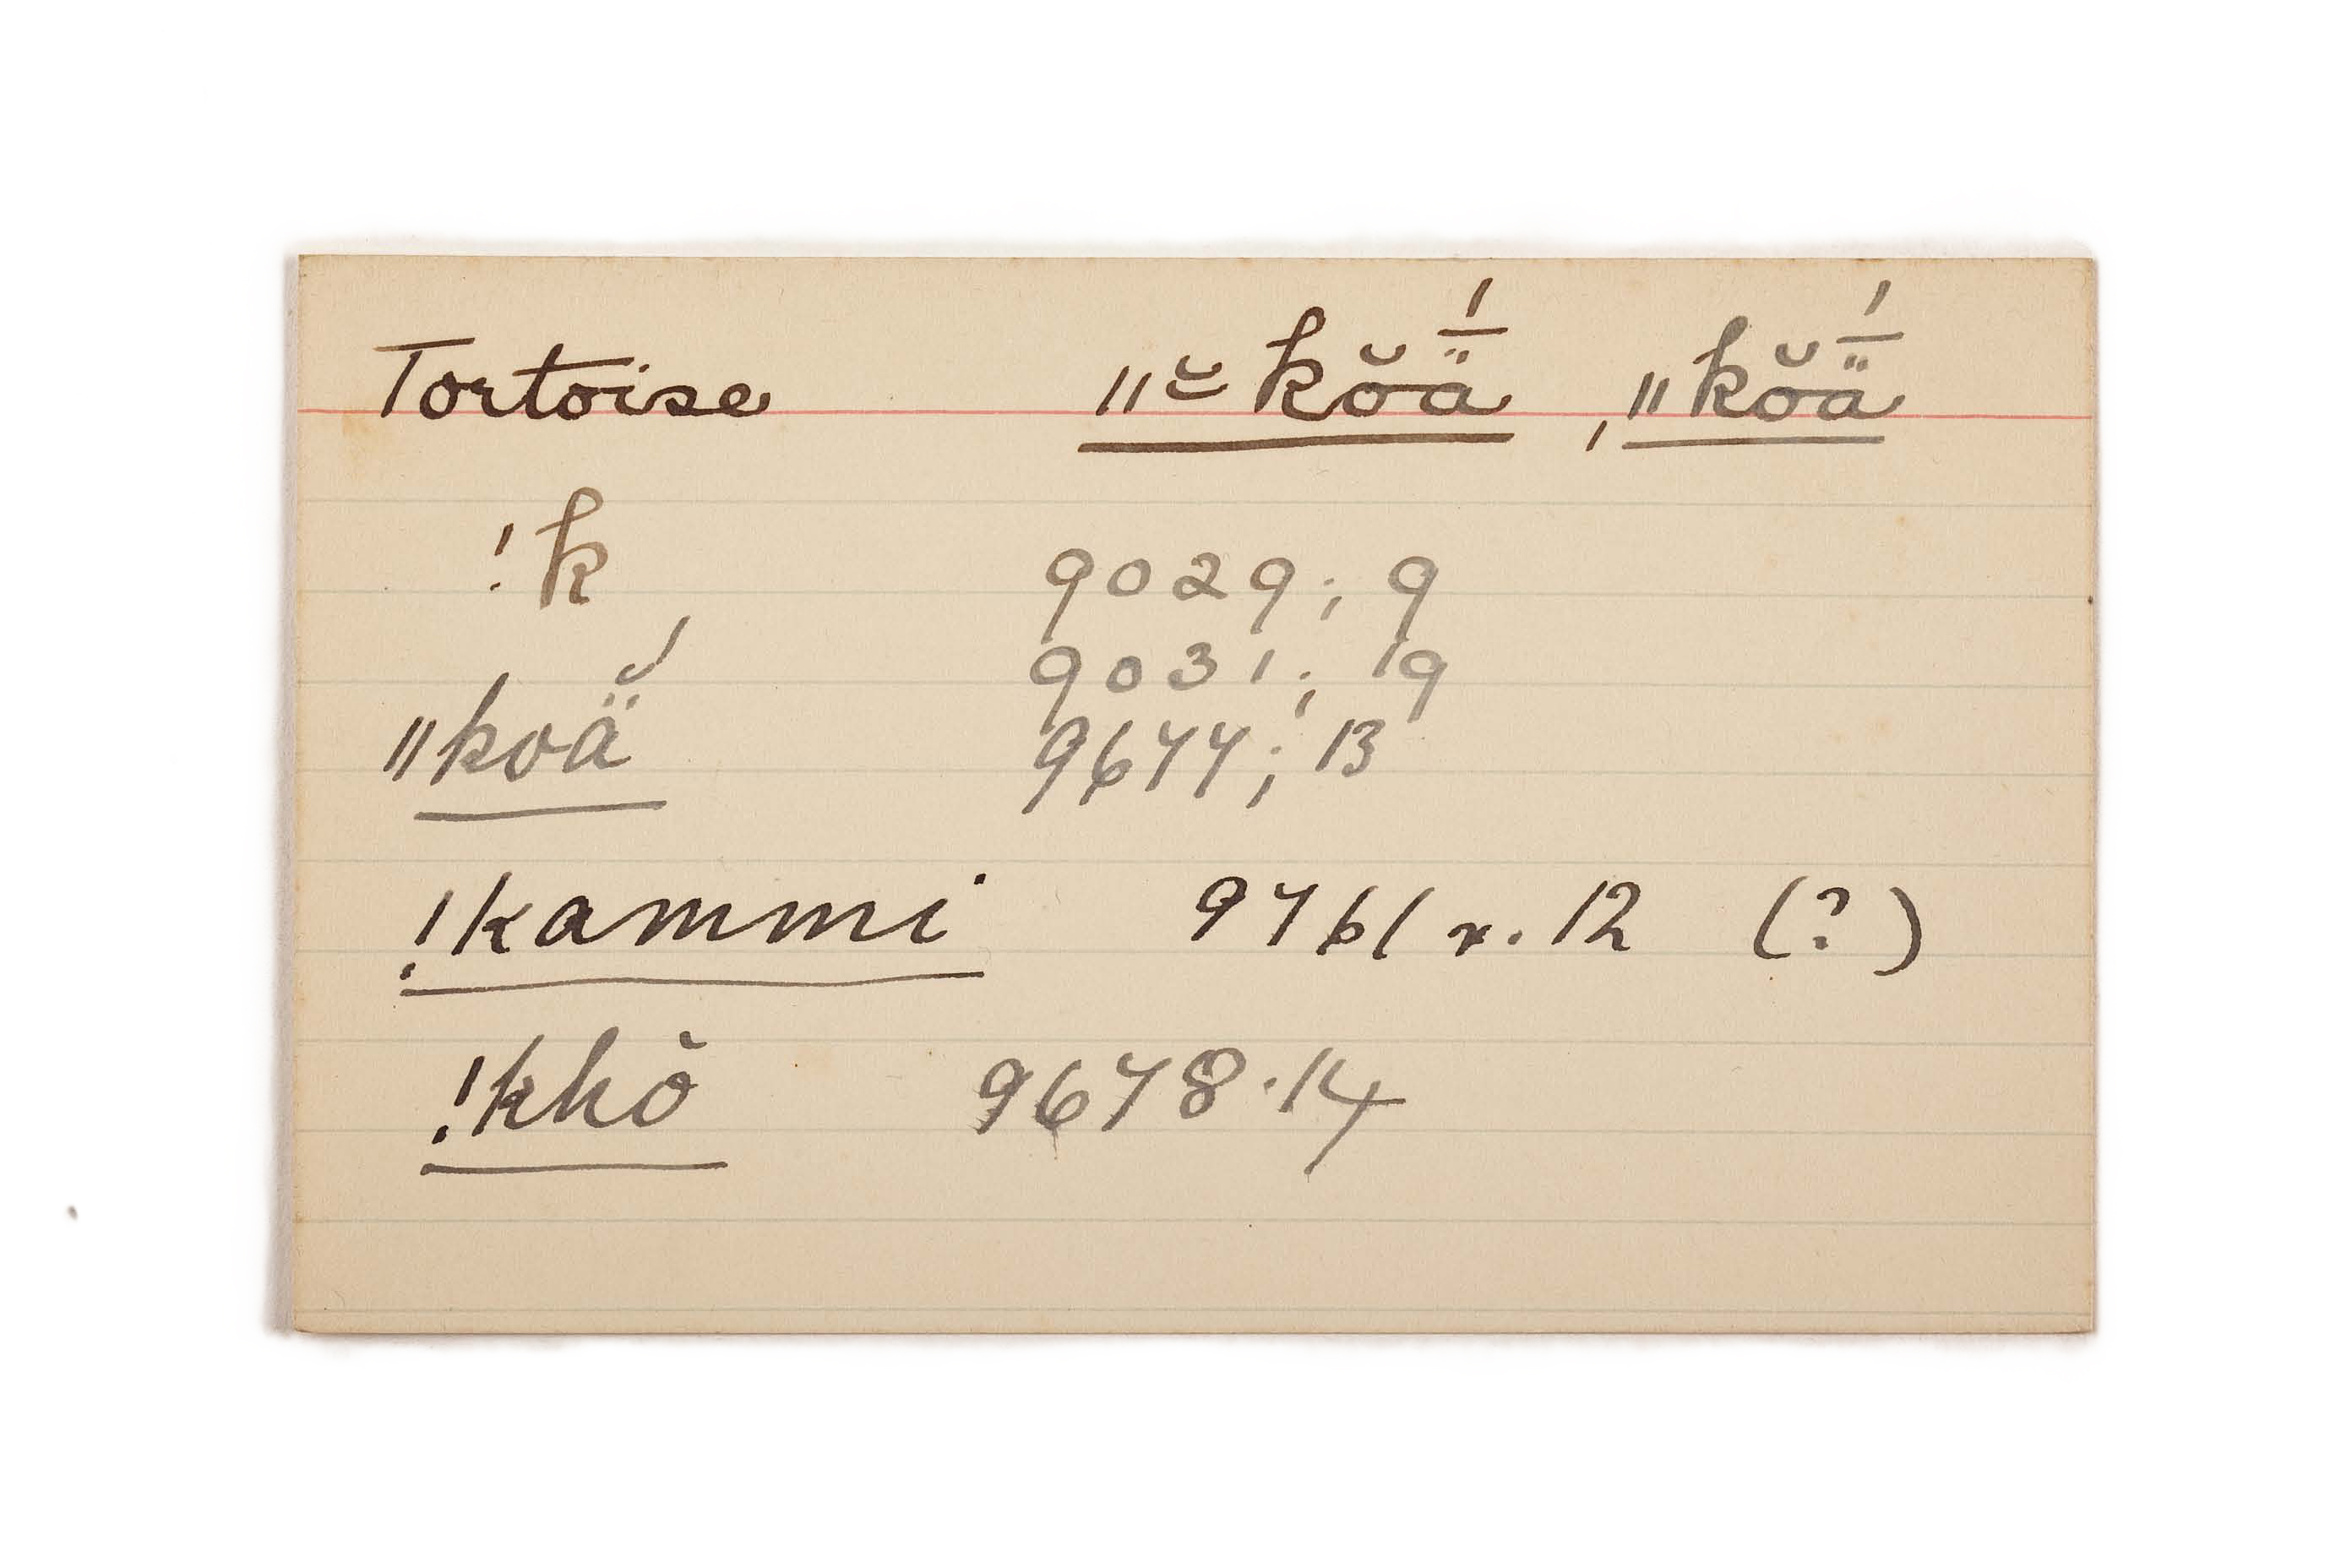 Tortoise ǁ⁼̆kŏǟ́, ǁkŏǟ́
!k 9029; 9
9031; 19
ǁkoä̆́ 9677; 13
!kammi 9761 r. 12 (?)
!khŏ 9678.14